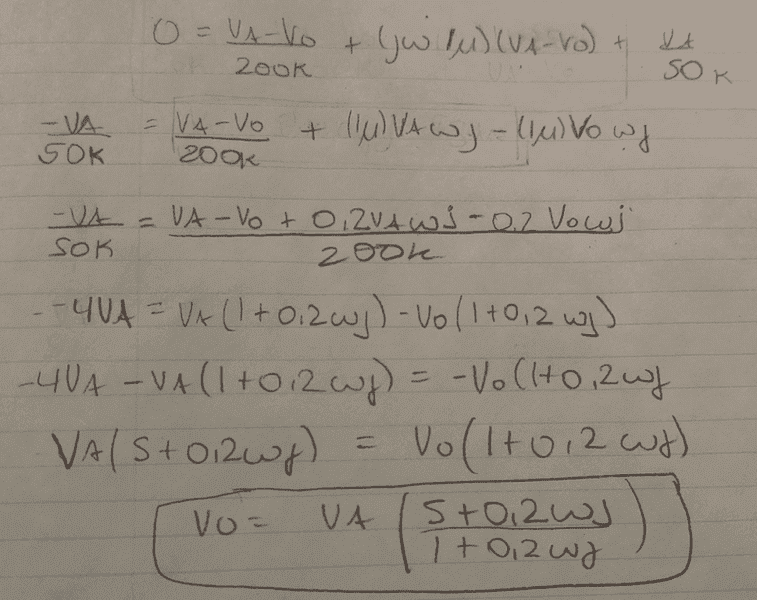 0 = VA-Vo/200K + (jω 1μ)(VA-Vo) + VA/50K
-VA/50K = VA-Vo/200K + (1μ)VAωj - (1μ)Voωj
-VA/50K = VA-Vo+0,2VAωj-0.2Voωj/200K
--4VA = VA(1+0,2ωj)-Vo(1+0,2ωj)
-4VA-VA(1+0,2ωj) = -Vo(1+0,2ωj
VA(5+0,2ωj) = Vo(1+0,2ωj)
VO= VA (5+0,2ωj/1+0,2ωj)